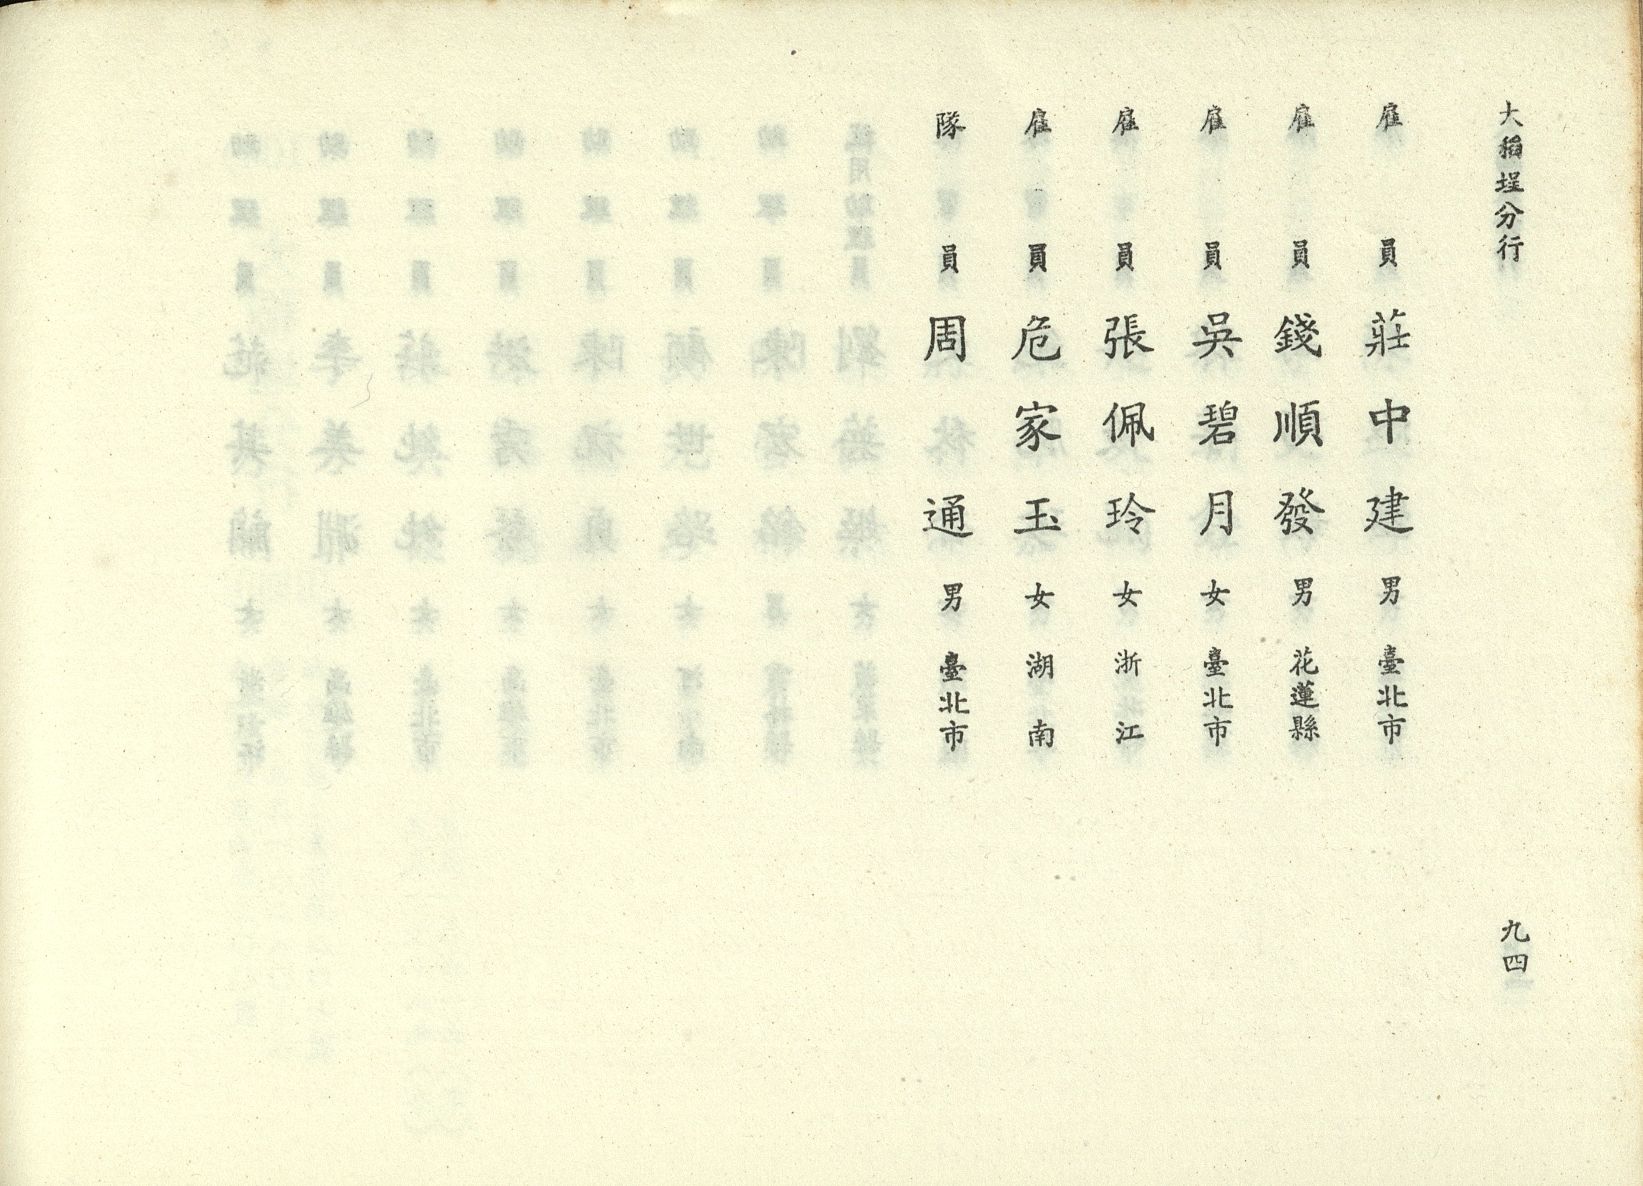 大稻埕分行
九四
雇員 莊中建 男 臺北市
雇員 錢順發 男 花蓮縣
雇員 吳碧月 女 臺北市
雇員 張佩玲 女 浙江
雇員 危家玉 女 湖南
隊員 周通 男 臺北市